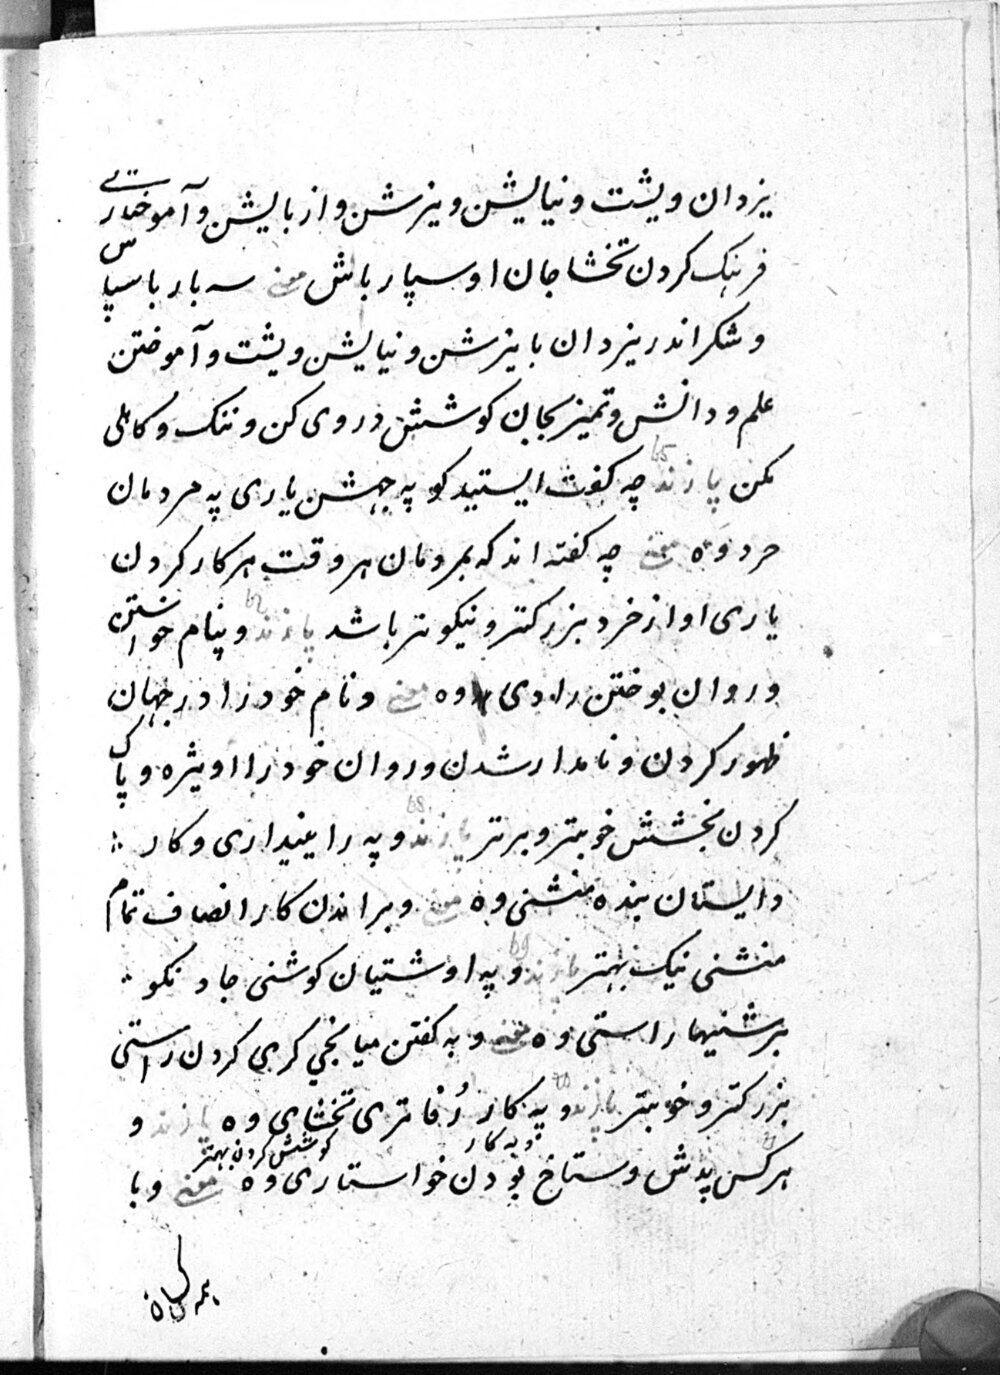 یزدان ویشت ونیایشن ویزشن واز بایشن وآموختدرستی
فرهنک کردن تخشا جان اوسپار باش معنی سه بار با سپاس
وشکر اندر یزدان با یزشن ونیایشن ویشت وآموختن
علم ودانش وتمیز بجان کوشش دروی کن وننک وکاهلی
مکن پازند ۶۵ چه کفت ایستید کو په جهشن یاری په مردمان
حرد وه معنی چه کفته اند که بمردمان هر وقت هر کار کردن
یاری او از خرد بزرکتر ونیکوتر باشد پازند وپنام خواستن
وروان بوختن رادی وه معنی ونام خود را در جهان
ظهور کردن ونامدار شدن وروان خود را اویژه وپاک
کردن بخشش خوبتر وبرتر پازند ۶۸ وپه رایینیداری وکار
دایستان بنده منشنی وه معنی وبراندن کار انصاف تمام
منشنی نیک بهتر پازند ۶۹ وپه اوشتیان کوشنی جادنکو
برشنیها راستی وه معنی وبه کفتن میانجی کری کردن راستی
بزرکتر وخوبتر پازند وپه کار رُفا متری تخشای وه پازند و
وبه کار کوشش کردن بهتر
هر کس پدش وستاخ بودن خواستاری وه معنی وبا
همه کسان